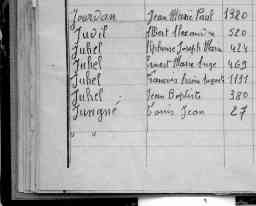 Jourdan Jean Marie Paul 1320
Juvil Albert Alexandre 520
Juhel Alphonse Joseph Marie 424
Juhel Ernest Marie Ange 469
Juhel François Marie Auguste 1191
Juhel Jean Baptiste 380
Juvigné Louis Jean 27
" "